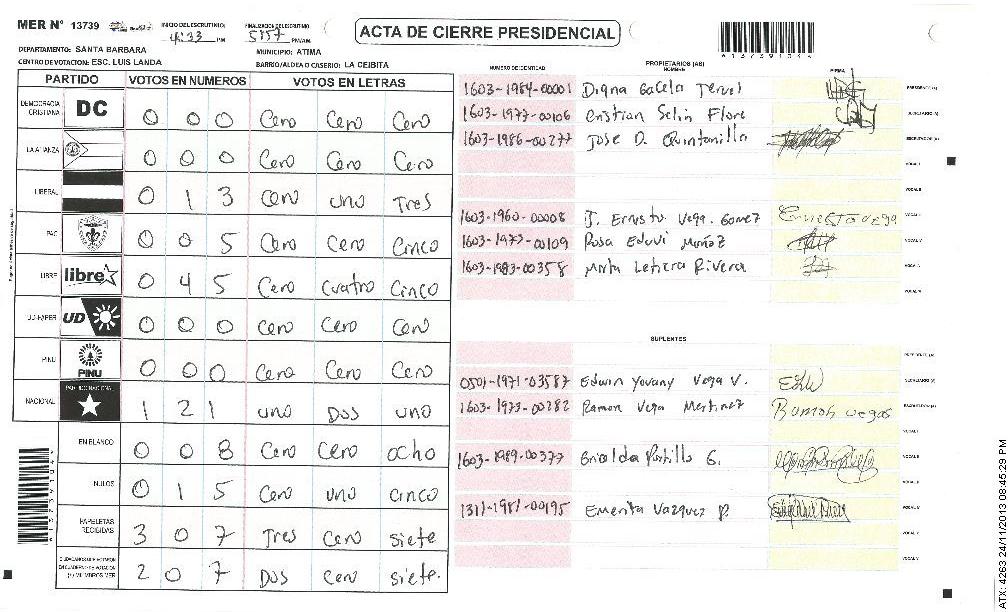 MER N° 13739
INICIO DEL ESCRUTINIO: 4:33 PM
FINALIZACION DEL ESCRUTINIO: 5:57 PM/AM
ACTA DE CIERRE PRESIDENCIAL
DEPARTAMENTO: SANTA BARBARA
MUNICIPIO: ATIMA
CENTRO DE VOTACION: ESC. LUIS LANDA
BARRIO/ALDEA O CASERIO: LA CEIBITA
PARTIDO VOTOS EN NUMEROS VOTOS EN LETRAS
DEMOCRACIA CRISTIANA DC 0 0 0 Cero Cero Cero
LA ALIANZA 0 0 0 Cero Cero Cero
LIBERAL 0 1 3 Cero uno Tres
PAC 0 0 5 Cero Cero Cinco
LIBRE libre 0 4 5 Cero Cuatro Cinco
UD-FAPER UD 0 0 0 Cero Cero Cero
PINU PINU 0 0 0 Cero Cero Cero
NACIONAL PARTIDO NACIONAL 1 2 1 uno Dos uno
EN BLANCO 0 0 8 Cero Cero ocho
NULOS 0 1 5 Cero uno cinco
PAPELETAS RECIBIDAS 3 0 7 Tres Cero siete
CIUDADANOS QUE VOTARON EN CUADERNO DE VOTACION (+) MIEMBROS MER 2 0 7 Dos Cero siete.
NUMERO DE IDENTIDAD
PROPIETARIOS (AS)
NOMBRE
FIRMA
1603-1984-00001 Digna PRESIDENTE (A)
1603-1977-00106 Cristian Selin Flore
1603-1986-00277 Jose D. Quintanilla ESCRUTADOR (A)
VOCAL I
VOCAL II
1603-1960-00008 J. Ernesto Vega. Gomez
1603-1973-00109 Rosa Eduvi Muñoz
1603-1983-00358 Mirta Leticia Rivera
SUPLENTES
PRESIDENTE (A)
0501-1971-03587 Edwin Yovany Vega V. SECRETARIO (A)
1603-1973-00282 Ramon Vega Martinez Ramon vegas ESCRUTADOR (A)
1603-1989-00377 Griselda Portillo G.
1311-1981-00195 Emerita Vazquez P.
137391044
ATX: 4263 24/11/2013 08:45:29 PM